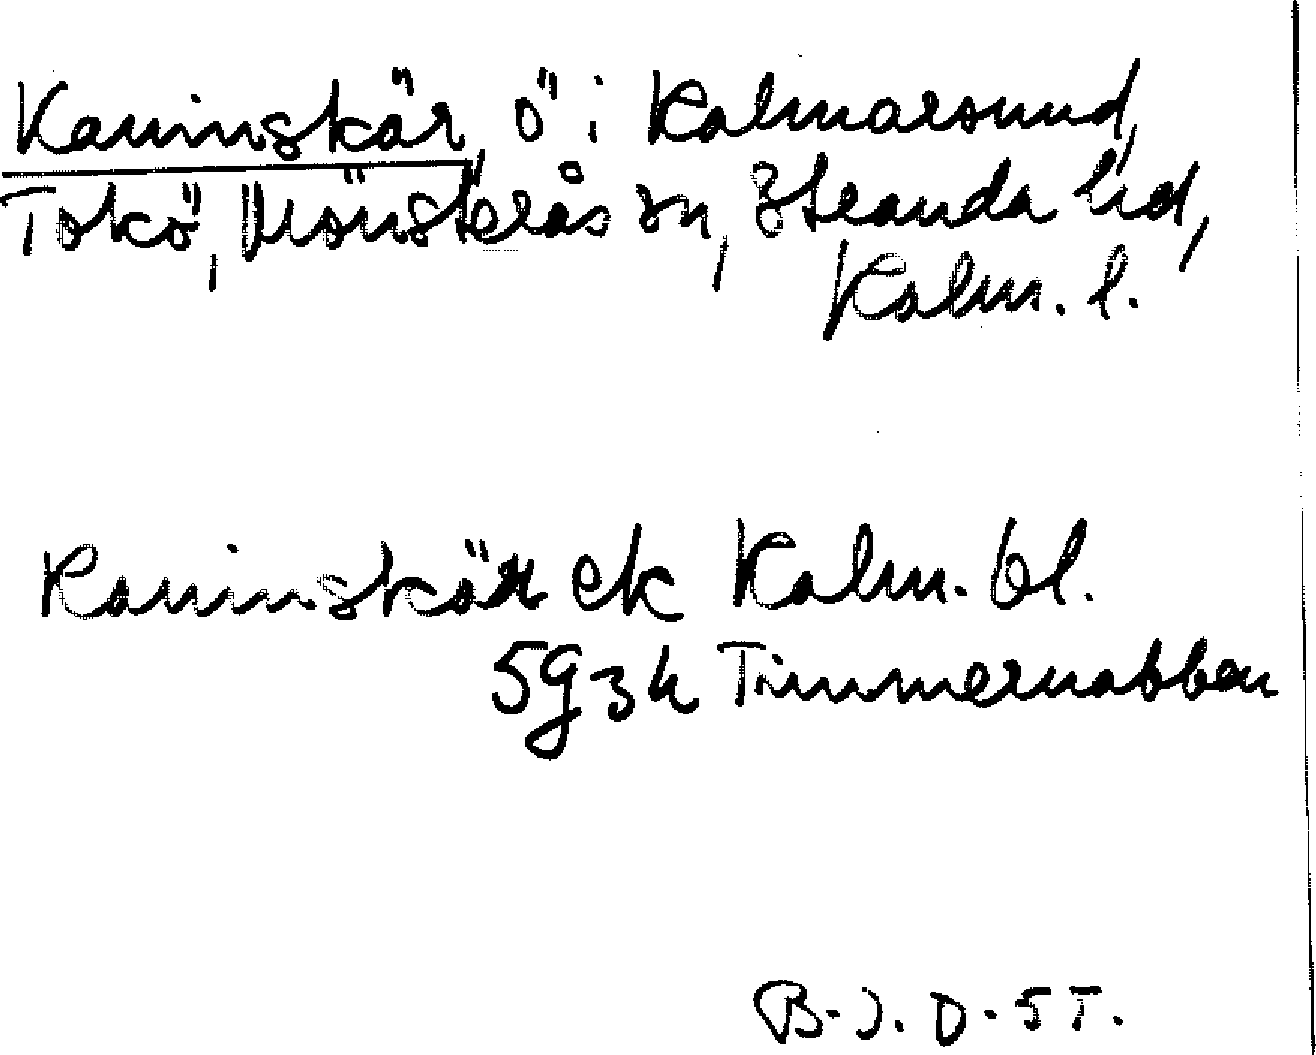 Kaninskär, ö i Kalmarsund,
Tokö, Mönsterås sn, Stranda hd,
Kalm. l.
Kaninskär ek Kalm. bl.
5g3h Timmernabben
B-J. D-5T.